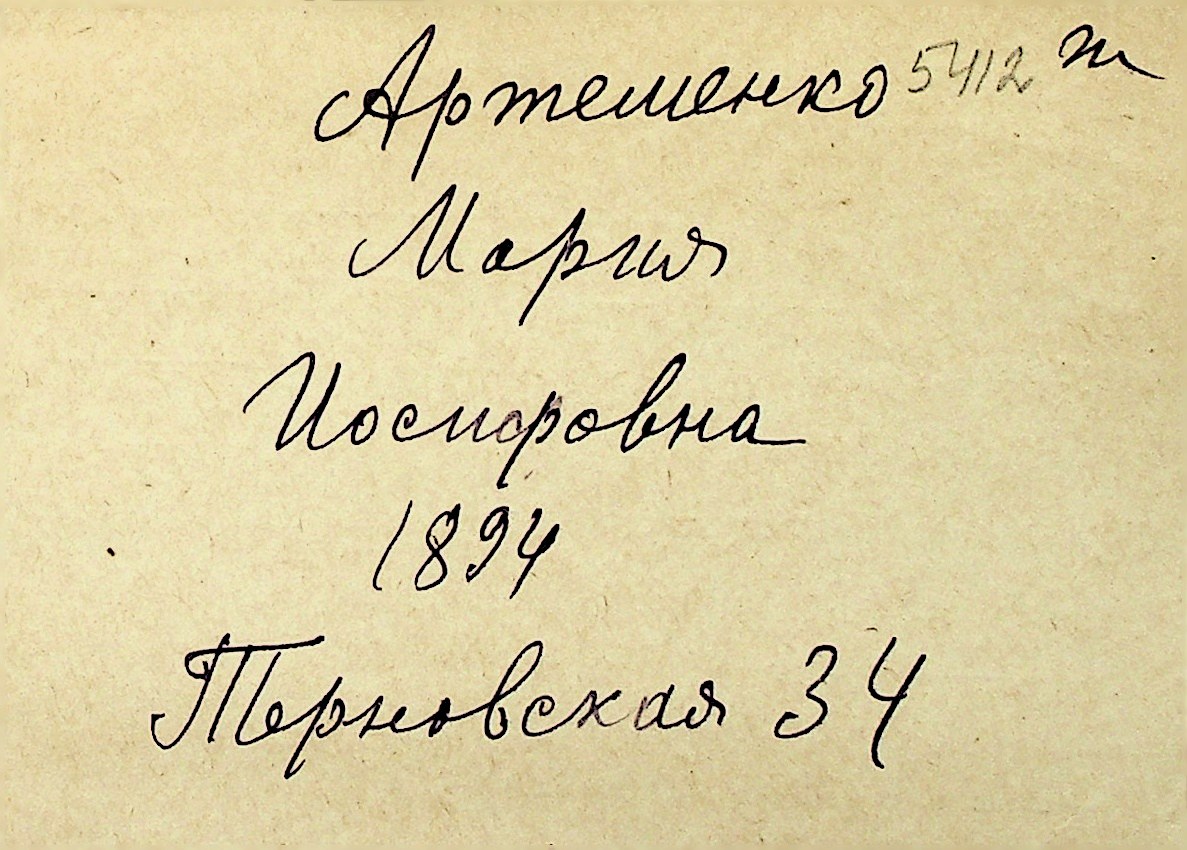 Артеменко 5412 т
Мария
Иосифовна
1894
Терновская 34